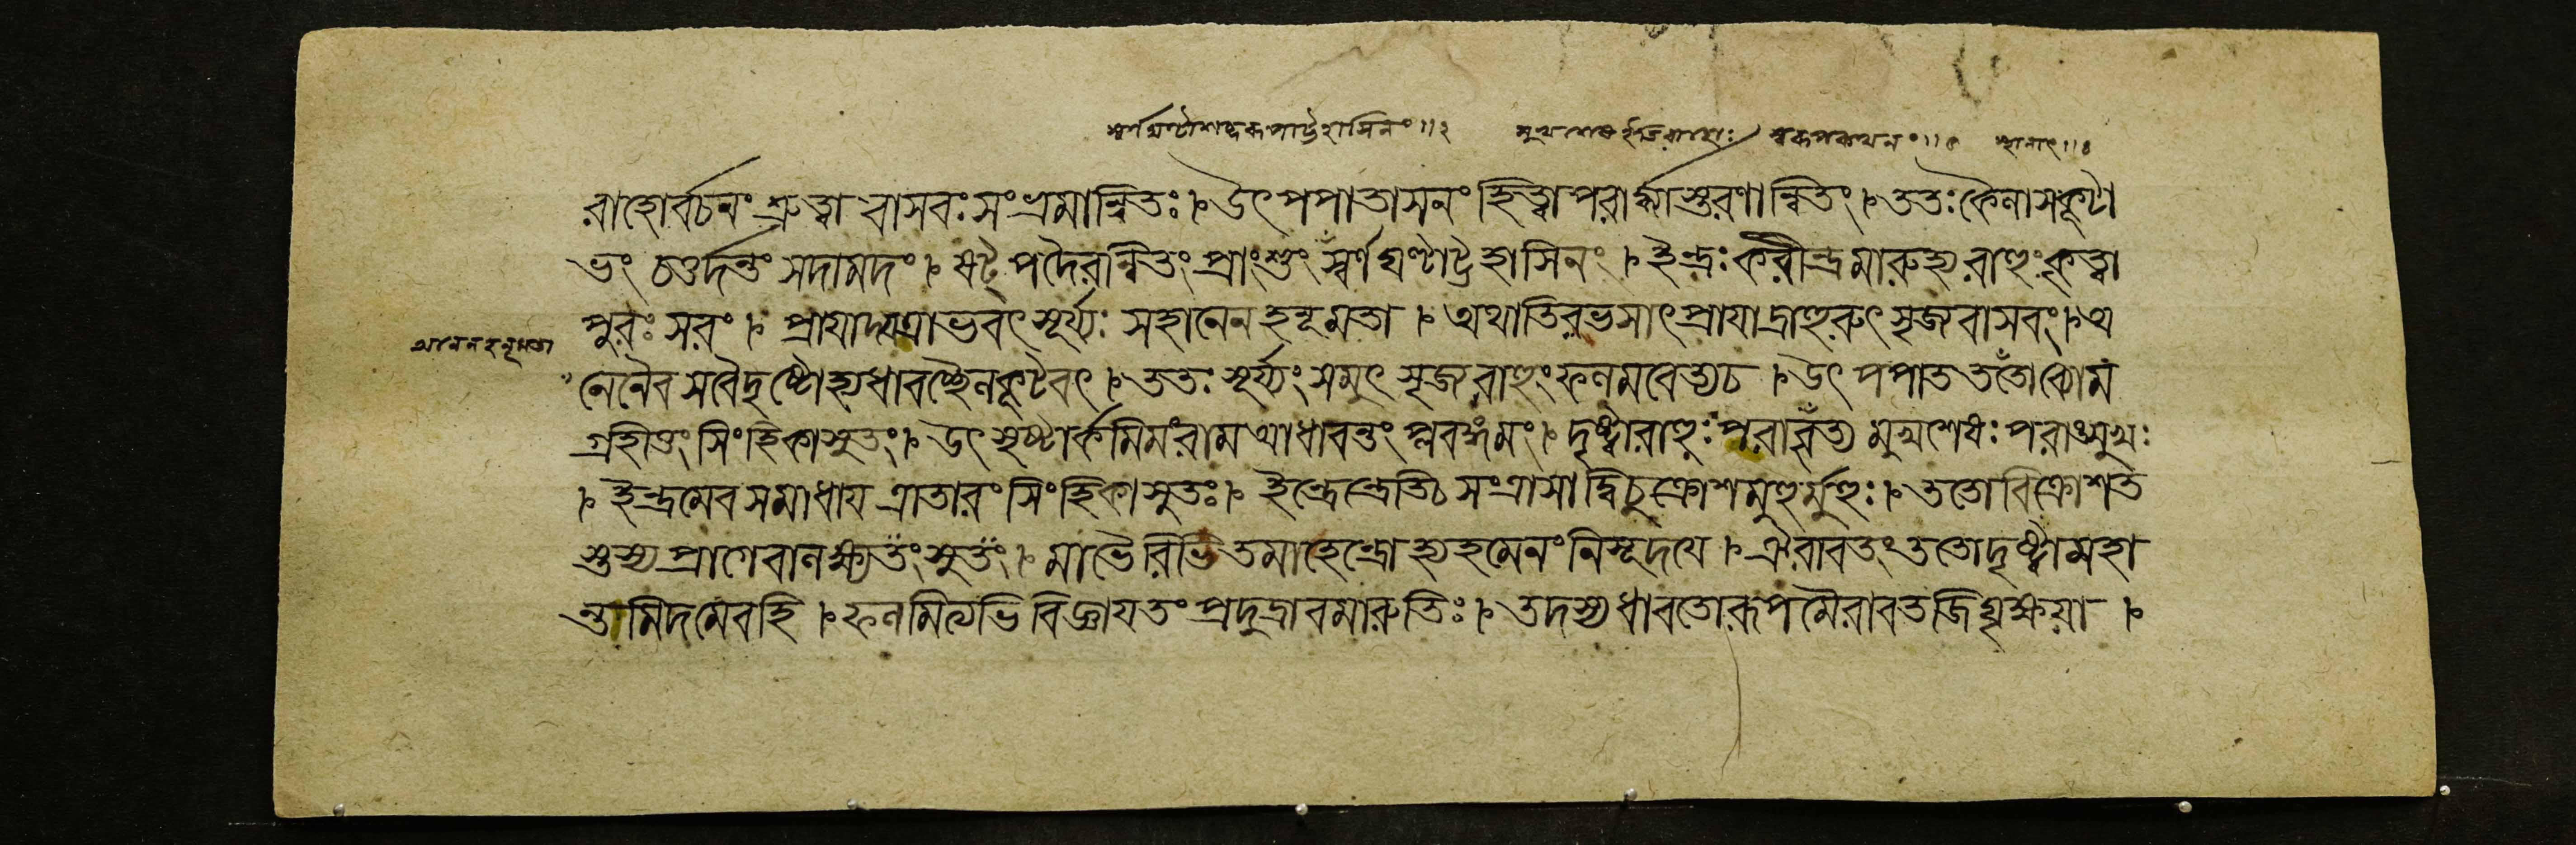 স্বর্ণঘণ্টাশব্দরূপাট্টহাসিনং॥২ মুখশেষইতিরাহোঃ স্বরূপকথনং॥
রাহোর্বচনং শ্রুত্বা বাসবঃ সংভ্রমান্বিতঃ। উৎপপাতাসনং হিত্বা পরার্ঘ্যাস্তরণান্বিতং। ততঃ কৈলাসকূটা
ভং চতুর্দন্তং সদামদং। ষট্পদৈরন্বিতং প্রাংশুং স্বর্ণঘণ্টাট্টহাসিনং। ইন্দ্রঃ করীন্দ্রমারুহ্য রাহুং কৃত্বা
পুরঃ সরং। প্রায়াদ্যত্রাভবৎ সূর্য্যঃ সহানেন হনূমতা। অথাতিরভসাৎ প্রায়াদ্রাহুরুৎসৃজ্য বাসবং। অ
অনেনহনূমতা
নেনৈব সবৈদৃষ্টোহ্যধাবচ্ছৈলকূটবৎ। ততঃ সূর্য্যং সমুৎসৃজ্য রাহুং ফলমবেত্য চ। উৎপপাত ততোব্যোম
গ্রহীতুং সিংহিকাসুতং। উৎসৃষ্টার্কমিমং রাম আধাবন্তং প্লবঙ্গমং। দৃষ্ট্বা রাহুঃ পরাবৃত্য মুখশেষঃ পরাঙ্মুখঃ
। ইন্দ্রমেব সমাধায় ত্রাতারং সিংহিকাসুতঃ। ইন্দ্রেন্দ্রেতিচ সংত্রাসাদ্বিচুক্রোশ মুহুর্মুহুঃ। ততোবিক্রোশত
স্তস্য প্রাগেবালক্ষ্যতং সুতং। মাভৈরিতি তমাহেন্দ্রোহ্যহমেনং নিসূদয়ে। ঐরাবতং ততোদৃষ্ট্বা মহা
ন্তমিদমেবহি। ফলমিত্যভিবিজ্ঞায় তং প্রদুদ্রাব মারুতিঃ। তদস্য ধাবতোরূপমৈরাবতজিঘৃক্ষয়া।